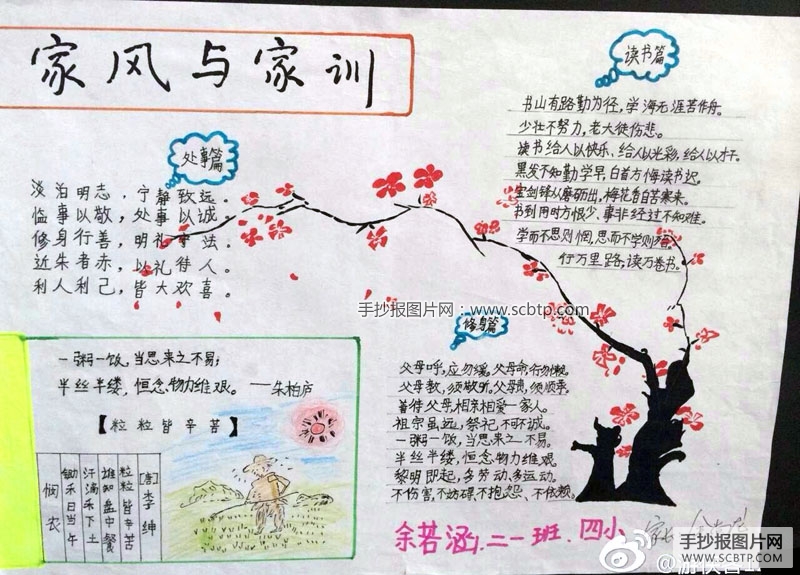 家风与家训
读书篇
书山有路勤为径，学海无涯苦作舟。
少壮不努力，老大徒伤悲。
读书给人以快乐、给人以光彩、给人以才干。
黑发不知勤学早，白首方悔读书迟。
宝剑锋从磨砺出，梅花香自苦寒来。
书到用时方恨少、事非经过不知难。
学而不思则惘，思而不学则殆。
行万里路，读万卷书。
处事篇
淡泊明志，宁静致远。
临事以敬，处事以诚。
修身行善，明礼守法。
近朱者赤，以礼待人。
利人利己，皆大欢喜。
手抄报图片网：www.scbtp.com
修身篇
父母呼，应勿缓，父母命，行勿懒。
父母教，须敬听，父母责，须顺承。
首待父母，相亲相爱一家人。
祖宗虽远，祭祀不可不诚。
一粥一饭，当思来之不易。
半丝半缕，恒念物力维艰。
黎明即起，多劳动、多运动。
不伤害、不妨碍、不抱怨、不依赖。
一粥一饭，当思来之不易；
半丝半缕，恒念物力维艰。——朱柏庐
【粒粒皆辛苦】
悯农
锄禾日当午
汗滴禾下土
谁知盘中餐
粒粒皆辛苦
【唐】李绅
余若涵 二一班 四小
手抄报图片网
WWW.SCBTP.COM